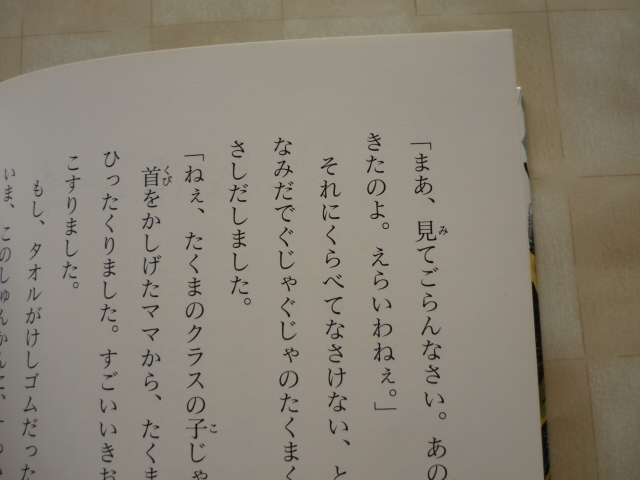 「まあ、見てごらんなさい。あの
きたのよ。えらいわねぇ。」
それにくらべてなさけない、と
なみだでぐじゃぐじゃのたくまく
さしだしました。
「ねぇ、たくまのクラスの子じゃ
首をかしげたママから、たくま
ひったくりました。すごいいきお
こすりました。
もし、タオルがけしゴムだった
いま、このしゅんかんに、